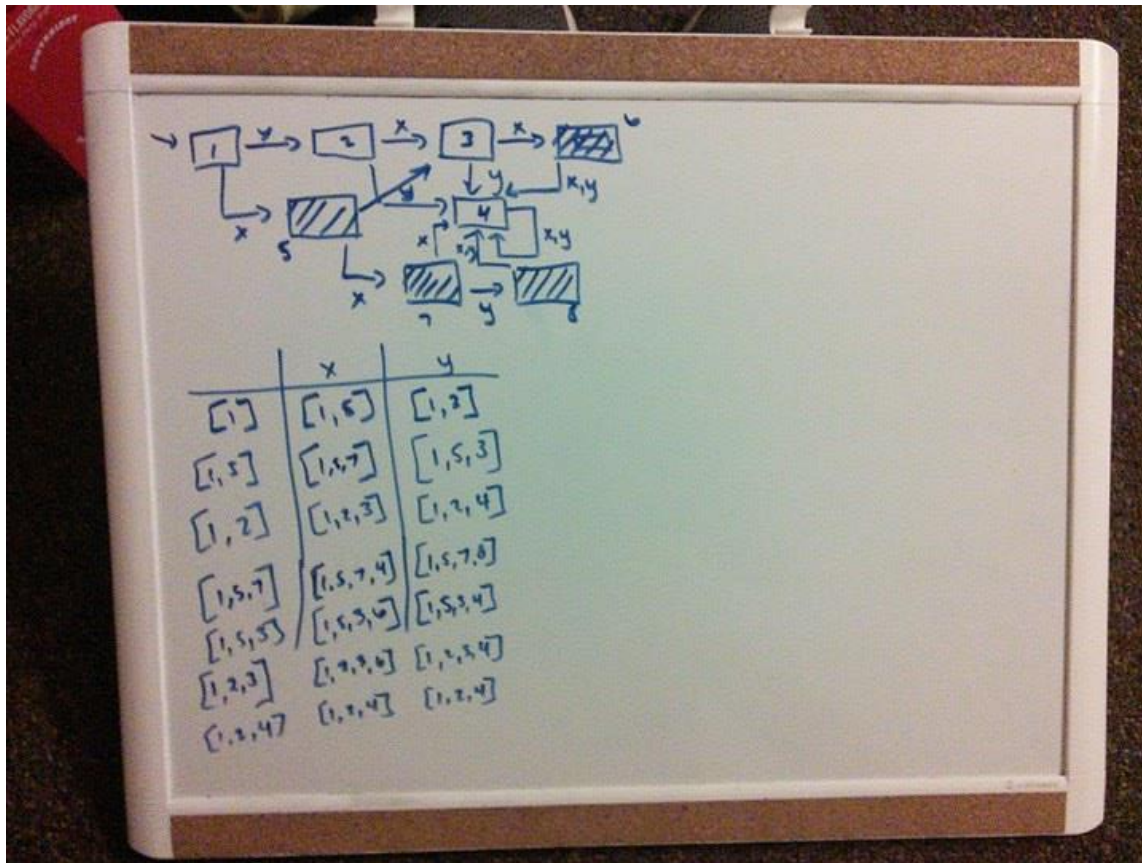 y x x 6
1 2 3
y y x,y
x 4
5 x x,y x,y
x y
7 8
x y
[1] [1,5] [1,2]
[1,5] [1,5,7] [1,5,3]
[1,2] [1,2,3] [1,2,4]
[1,5,7] [1,5,7,4] [1,5,7,8]
[1,5,3] [1,5,3,6] [1,5,3,4]
[1,2,3] [1,2,3,6] [1,2,3,4]
[1,2,4] [1,2,4] [1,2,4]